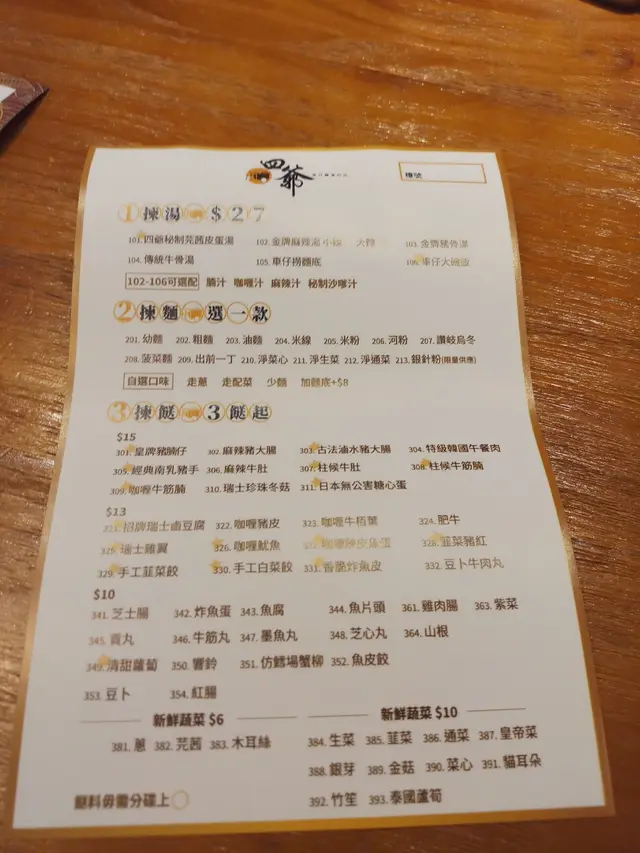 四爺
檯號
1 揀湯 $27
101. 四爺秘制芫茜皮蛋湯 102. 金牌麻辣湯 小辣 大辣 103. 金牌豬骨湯
104. 傳統牛骨湯 105. 車仔撈麵底 106. 車仔大碗麵
102-106可選配 腩汁 咖喱汁 麻辣汁 秘制沙嗲汁
2 揀麵 選一款
201. 幼麵 202. 粗麵 203. 油麵 204. 米線 205. 米粉 206. 河粉 207. 讚岐烏冬
208. 菠菜麵 209. 出前一丁 210. 淨菜心 211. 淨生菜 212. 淨通菜 213. 銀針粉(限量供應)
自選口味 走蔥 走配菜 少麵 加麵底+$8
3 揀餸 3餸起
$15
301. 皇牌豬腩仔 302. 麻辣豬大腸 303. 古法滷水豬大腸 304. 特級韓國午餐肉
305. 經典南乳豬手 306. 麻辣牛肚 307. 柱候牛肚 308. 柱候牛筋腩
309. 咖喱牛筋腩 310. 瑞士珍珠冬菇 311. 日本無公害糖心蛋
$13
321. 招牌瑞士鹵豆腐 322. 咖喱豬皮 323. 咖喱牛栢葉 324. 肥牛
325. 瑞士雞翼 326. 咖喱魷魚 咖喱魚蛋 328. 韮菜豬紅
329. 手工韮菜餃 330. 手工白菜餃 331. 香脆炸魚皮 332. 豆卜牛肉丸
$10
341. 芝士腸 342. 炸魚蛋 343. 魚腐 344. 魚片頭 361. 雞肉腸 363. 紫菜
345. 貢丸 346. 牛筋丸 347. 墨魚丸 348. 芝心丸 364. 山根
349. 清甜蘿蔔 350. 響鈴 351. 仿鱈場蟹柳 352. 魚皮餃
353. 豆卜 354. 紅腸
新鮮蔬菜 $6
381. 蔥 382. 芫茜 383. 木耳絲
新鮮蔬菜 $10
384. 生菜 385. 韮菜 386. 通菜 387. 皇帝菜
388. 銀芽 389. 金菇 390. 菜心 391. 貓耳朵
392. 竹笙 393. 泰國蘆筍
餸料毋需分碟上